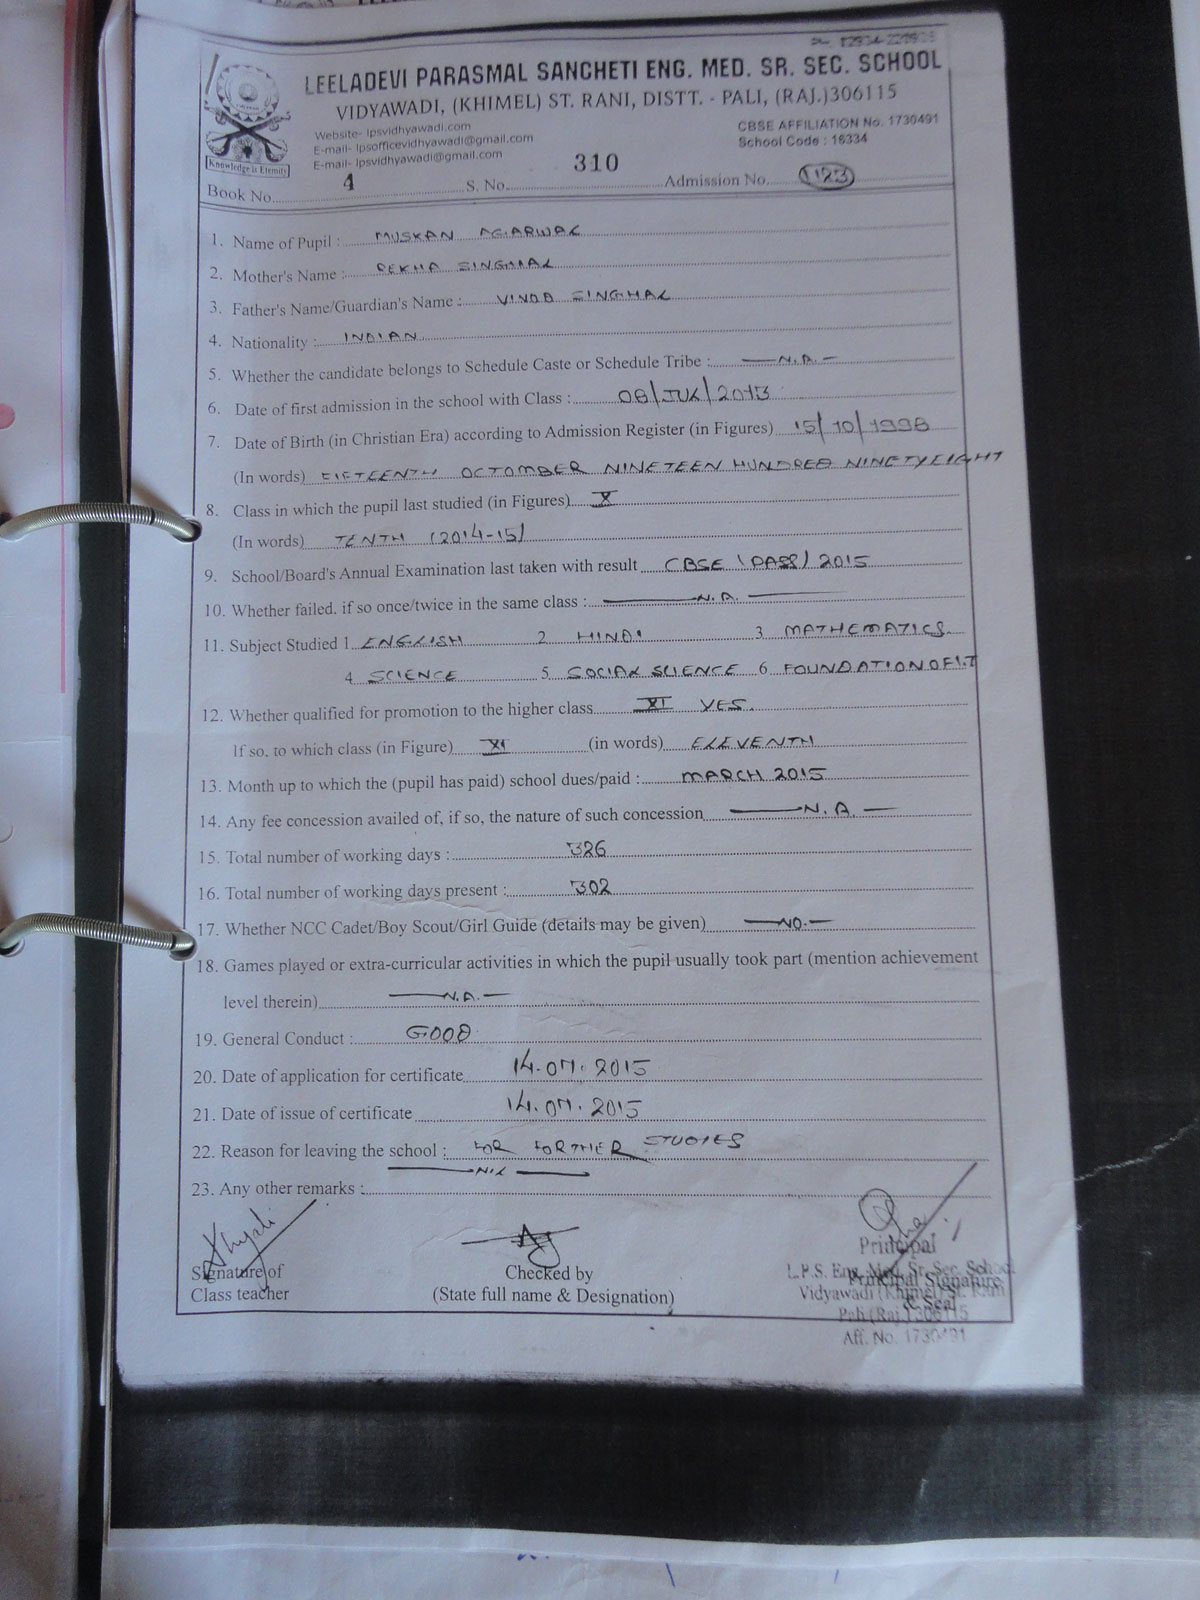 LEELADEVI PARASMAL SANCHETI ENG. MED. SR. SEC. SCHOOL
VIDYAWADI, (KHIMEL) ST. RANI, DISTT. - PALI, (RAJ.)306115
Website- lpsvidhyawadi.com
E-mail- lpsofficevidhyawadi@gmail.com
E-mail- lpsvidhyawadi@gmail.com
CBSE AFFILIATION No. 1730491
School Code : 16334
Knowledge is Eternity
Book No. 4 S. No. 310 Admission No. 1123
1. Name of Pupil : MUSKAN AGARWAL
2. Mother's Name : REKHA SINGHAL
3. Father's Name/Guardian's Name : VINOD SINGHAL
4. Nationality : INDIAN
5. Whether the candidate belongs to Schedule Caste or Schedule Tribe : N.A.
6. Date of first admission in the school with Class : 08/JUL/2013
7. Date of Birth (in Christian Era) according to Admission Register (in Figures) 15/10/1998
(In words) FIFTEENTH OCTOMBER NINETEEN HUNDRED NINETYEIGHT
8. Class in which the pupil last studied (in Figures) X
(In words) TENTH (2014-15)
9. School/Board's Annual Examination last taken with result CBSE (PASS) 2015
10. Whether failed. if so once/twice in the same class : N.A.
11. Subject Studied 1 ENGLISH 2 HINDI 3 MATHEMATICS
4 SCIENCE 5 SOCIAL SCIENCE 6 FOUNDATION OF I.T
12. Whether qualified for promotion to the higher class XI YES.
If so, to which class (in Figure) XI (in words) ELEVENTH
13. Month up to which the (pupil has paid) school dues/paid : MARCH 2015
14. Any fee concession availed of, if so, the nature of such concession N.A.
15. Total number of working days : 326
16. Total number of working days present : 302
17. Whether NCC Cadet/Boy Scout/Girl Guide (details may be given) NO.
18. Games played or extra-curricular activities in which the pupil usually took part (mention achievement
level therein) N.A.
19. General Conduct : GOOD
20. Date of application for certificate 14.07.2015
21. Date of issue of certificate 14.07.2015
22. Reason for leaving the school : FOR FORTHER STUDIES
NIL
23. Any other remarks :
Signature of
Class teacher
Checked by
(State full name & Designation)
Principal
L.P.S. Eng. Med. Sr. Sec. School
Principal Signature
Vidyawadi (Khimel) St. Rani
& Seal
Pali (Raj.) 306115
Aff. No. 1730491